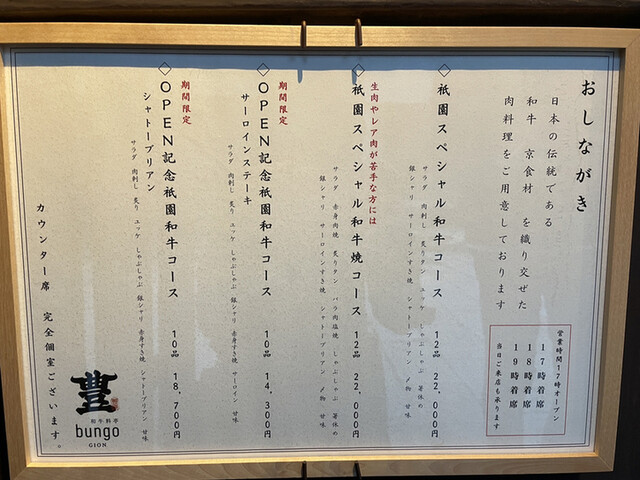 おしながき
日本の伝統である
和牛 京食材 を織り交ぜた
肉料理をご用意しております
営業時間17時オープン
17時着席
18時着席
19時着席
当日ご来店も承ります
◇祇園スペシャル和牛コース 12品 22,000円
サラダ 肉刺し 炙りタン ユッケ しゃぶしゃぶ 箸休め
銀シャリ サーロインすき焼 シャトーブリアン 〆物 甘味
生肉やレア肉が苦手な方には
◇祇園スペシャル和牛焼コース 12品 22,000円
サラダ 赤身肉焼 炙りタン バラ肉塩焼 しゃぶしゃぶ 箸休め
銀シャリ サーロインすき焼 シャトーブリアン 〆物 甘味
期間限定
◇OPEN記念祇園和牛コース 10品 14,300円
サーロインステーキ
サラダ 肉刺し 炙り ユッケ しゃぶしゃぶ 銀シャリ 赤身すき焼 サーロイン 甘味
期間限定
◇OPEN記念祇園和牛コース 10品 18,700円
シャトーブリアン
サラダ 肉刺し 炙り ユッケ しゃぶしゃぶ 銀シャリ 赤身すき焼 シャトーブリアン 甘味
カウンター席 完全個室ございます。
豊
和牛料亭
bungo
GION